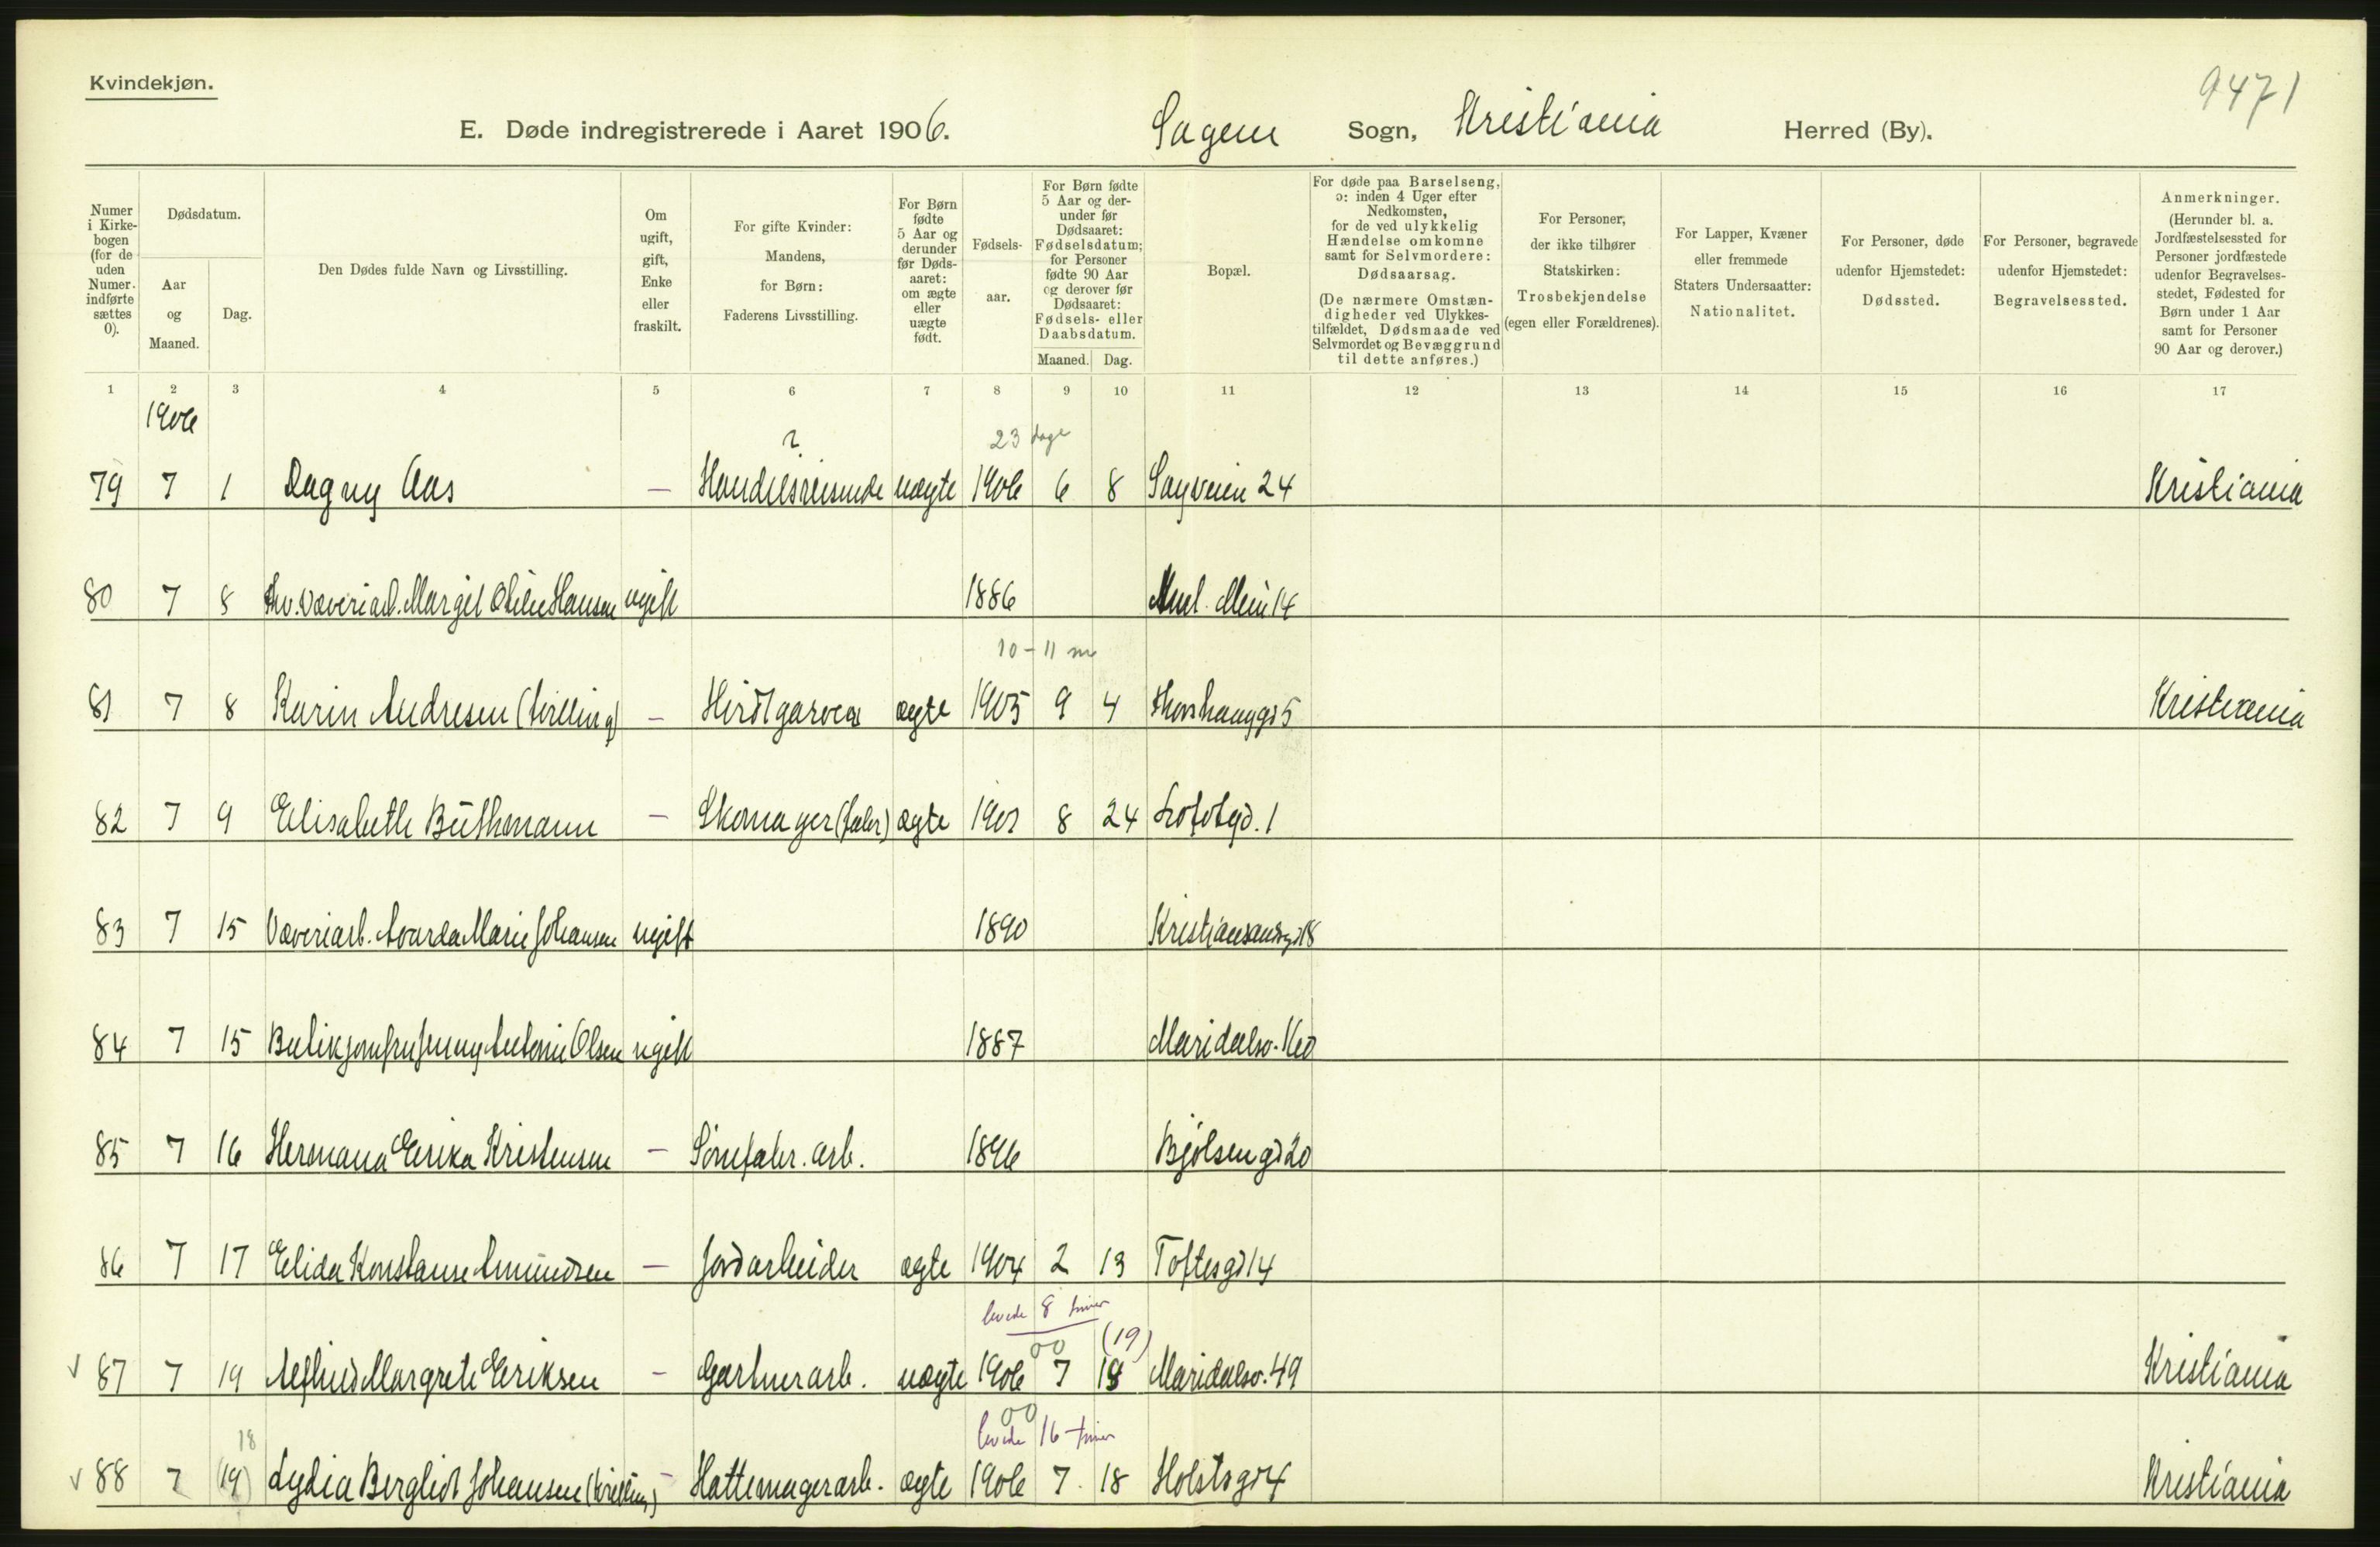 Kvindekjøn.
9471
E. Døde indregistrerede i Aaret 1906. Sagene Sogn, Kristiania Herred (By).
Numer i Kirkebogen (for de uden Numer indførte sættes 0).
Dødsdatum.
Aar og Maaned.
Dag.
Den Dødes fulde Navn og Livsstilling.
Om ugift, gift, Enke eller fraskilt.
For gifte Kvinder: Mandens, for Børn: Faderens Livsstilling.
For Børn fødte 5 Aar og derunder før Dødsaaret: om ægte eller uægte født.
Fødselsaar.
For Børn fødte 5 Aar og derunder før Dødsaaret: Fødselsdatum; for Personer fødte 90 Aar og derover før Dødsaaret: Fødsels- eller Daabsdatum.
Maaned. Dag.
Bopæl.
For døde paa Barselseng, ɔ: inden 4 Uger efter Nedkomsten, for de ved ulykkelig Hændelse omkomne samt for Selvmordere: Dødsaarsag.
(De nærmere Omstændigheder ved Ulykkestilfældet, Dødsmaade ved Selvmordet og Bevæggrund til dette anføres.)
For Personer, der ikke tilhører Statskirken: Trosbekjendelse (egen eller Forældrenes).
For Lapper, Kvæner eller fremmede Staters Undersaatter: Nationalitet.
For Personer, døde udenfor Hjemstedet: Dødssted.
For Personer, begravede udenfor Hjemstedet: Begravelsessted.
Anmerkninger.
(Herunder bl. a. Jordfæstelsessted for Personer jordfæstede udenfor Begravelsesstedet, Fødested for Børn under 1 Aar samt for Personer 90 Aar og derover.)
1 2 3 4 5 6 7 8 9 10 11 12 13 14 15 16 17
1906
? 23 dage
79 7 1 Dagny Aas — Handelsreisende uægte 1906 6 8 Sagveien 24 Kristiania
80 7 8 Væveriarb. Margit Hansen ugift 1886 14
10-11 m
81 7 8 Karin Andresen (tvilling) — ægte 1905 9 4 Thorshauggd 5 Kristiania
82 7 9 Elisabeth Büthmann — Skomager (fabr) ægte 1901 8 24 Lofotgd. 1
83 7 15 Væveriarb. Marie Johansen ugift 1890 Kristiansandsgd 18
84 7 15 Butikjomfru Jenny Antonie Olsen ugift 1887 Maridalsv.
85 7 16 Hermana Erika Kristensen — Sømfabr. arb. 1896 Bjølsengd 20
86 7 17 Elida Konstanse Amundsen — Jordarbeider ægte 1904 2 13 Toftesgd 14
levede 8 timer
00 (19)
√ 87 7 19 Margrete Eriksen — Gartnerarb. uægte 1906 7 18 Maridalsv. 49 Kristiania
00
18 levede 16 timer
√ 88 7 (19) Lydia Bergliot Johansen (tvilling) — Hattemagerarb. ægte 1906 7. 18 Holstsgd 4 Kristiania